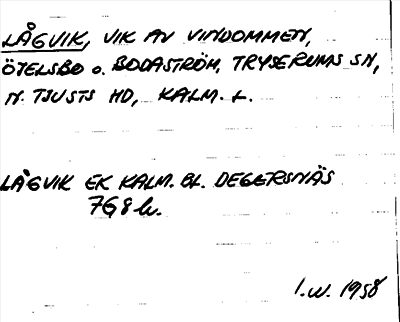 LÅGVIK, VIK AV VINDOMMEN,
ÖTELSBO o. BODASTRÖM, TRYSERUMS SN,
N. TJUSTS HD, KALM. L.
LÅGVIK EK KALM. BL. DEGERSNÄS
7G8h.
I.W. 1958